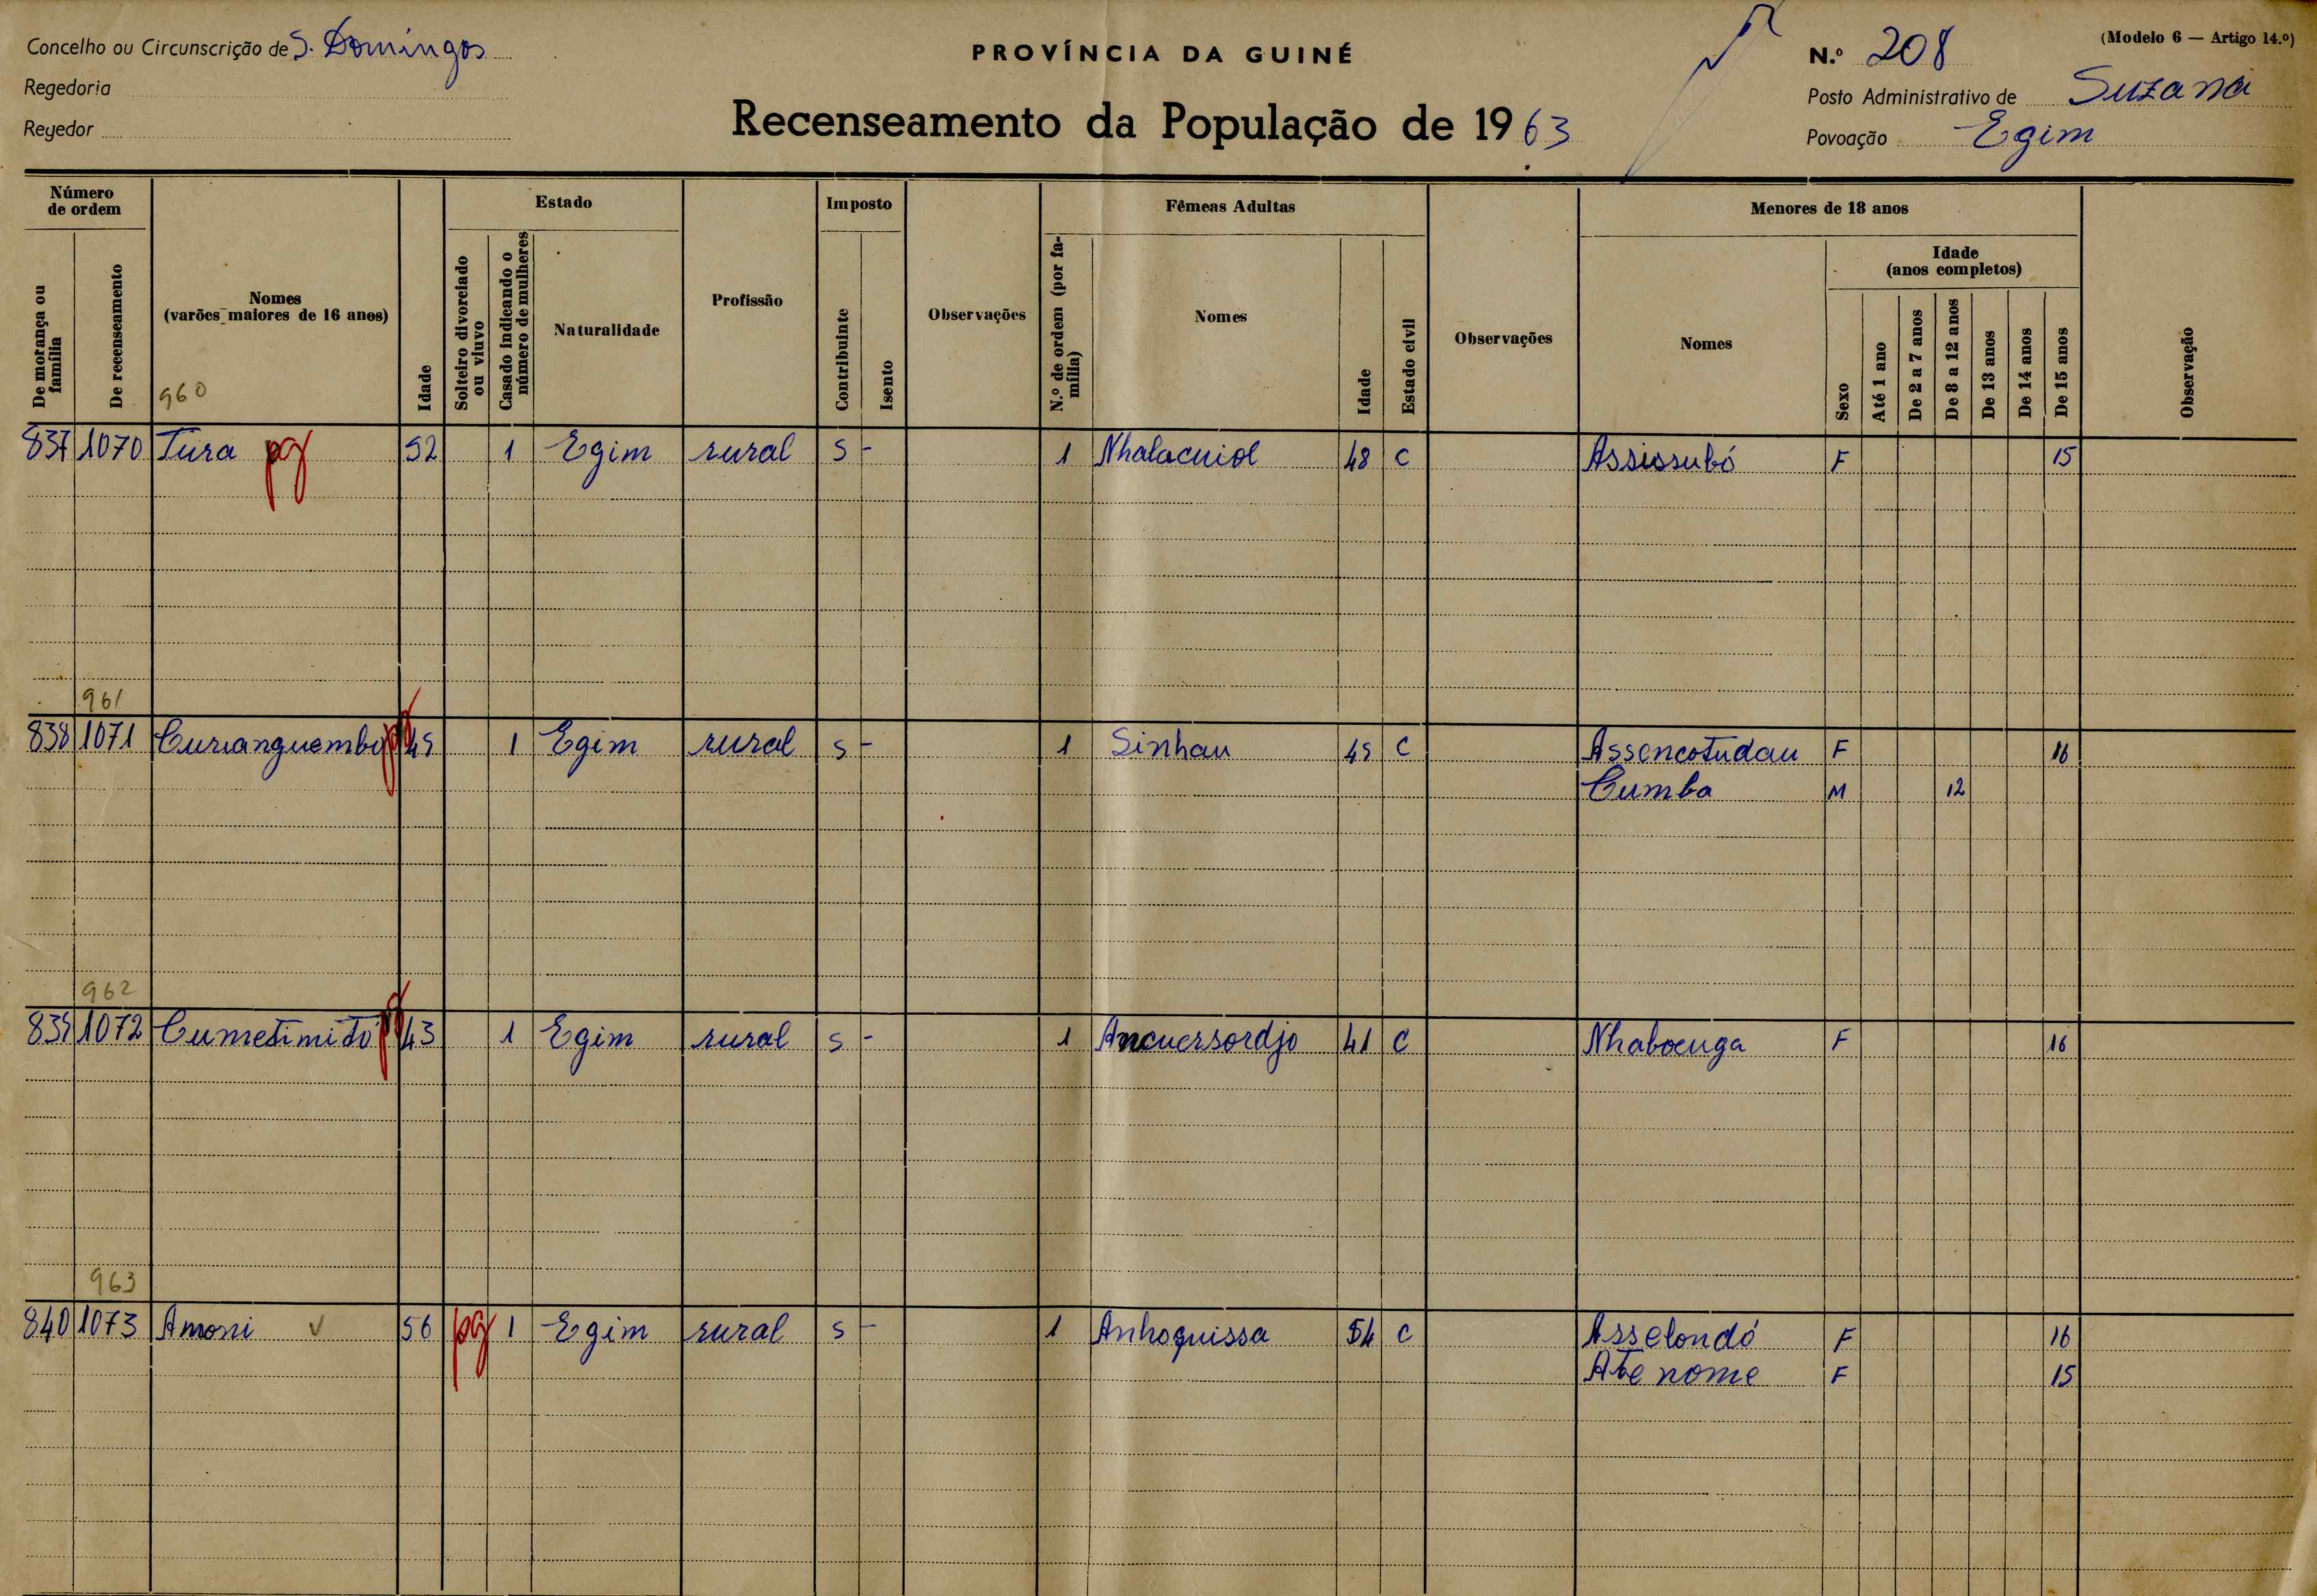 Concelho ou Circunscrição de S. Domingos
Regedoria
Regedor
PROVÍNCIA DA GUINÉ
Recenseamento da População de 1963
(Modelo 6 — Artigo 14.º)
N.º 208
Posto Administrativo de Suzana
Povoação Egim
Número de ordem
De morança ou família
De recenseamento
Nomes
(varões maiores de 16 anos)
Idade
Estado
Solteiro divorciado ou viuvo
Casado indicando o número de mulheres
Naturalidade
Profissão
Imposto
Contribuinte
Isento
Observações
Fêmeas Adultas
N.º de ordem (por família)
Nomes
Idade
Estado civil
Observações
Menores de 18 anos
Nomes
Sexo
Idade
(anos completos)
Até 1 ano
De 2 a 7 anos
De 8 a 12 anos
De 13 anos
De 14 anos
De 15 anos
Observação
960
837 1070 Tura pg 52 1 Egim rural S - 1 Nhalacuiol 48 C Assissubó F 15
961
838 1071 Curianguembu pg 45 1 Egim rural S - 1 Sinhau 45 C Assencotudau F 16
Cumba M 12
962
839 1072 Cumetimitó pg 43 1 Egim rural S - 1 Ancuersordjo 41 C Nhaboenga F 16
963
840 1073 Amoni v 56 pg 1 Egim rural S - 1 Anhoquissa 54 C Asselondó F 16
Abe nome F 15